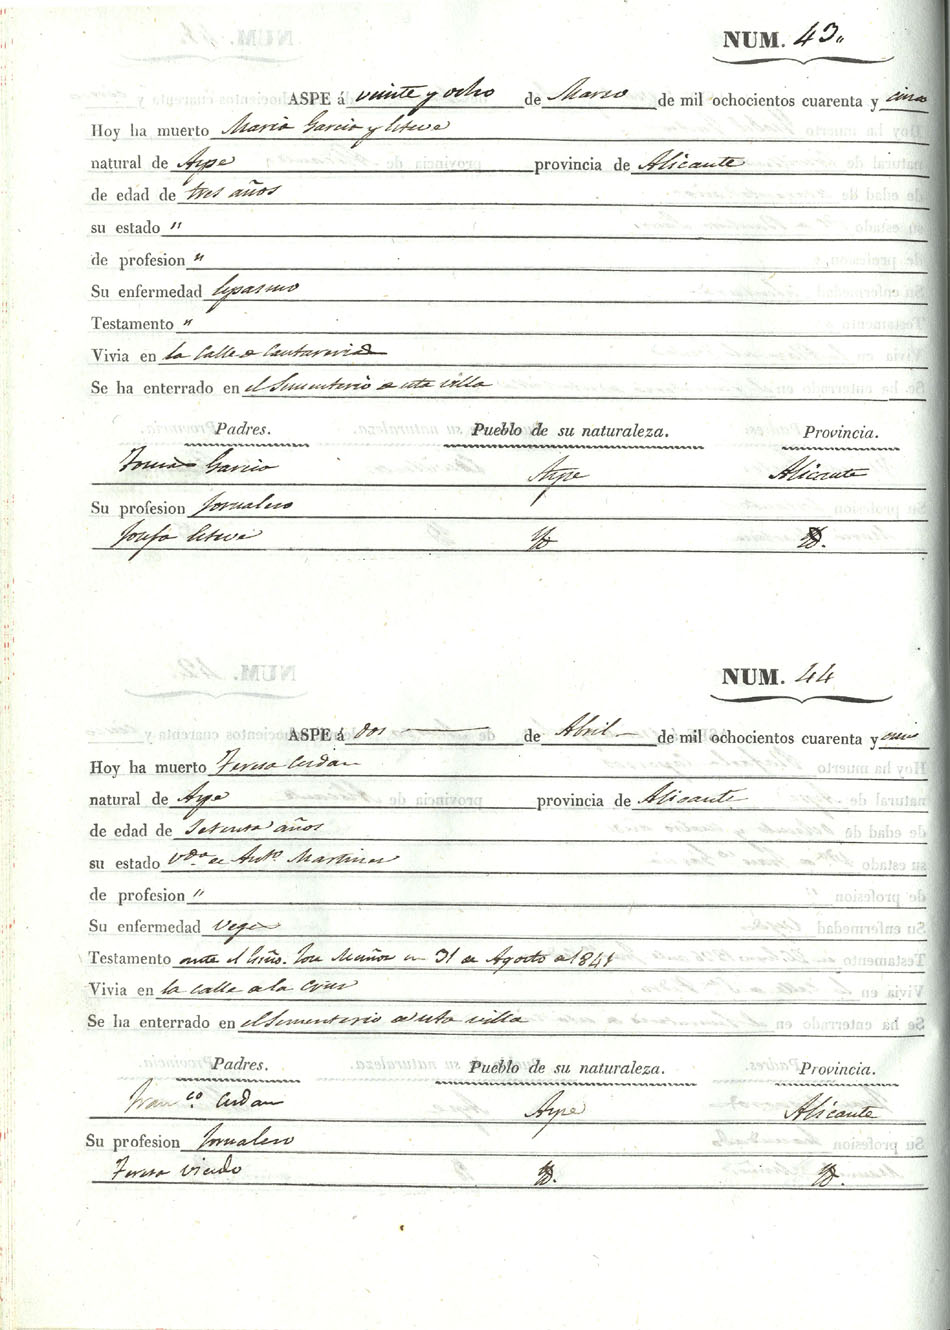 NUM. 43.
ASPE á veinte y ocho de Marzo de mil ochocientos cuarenta y cinco
Hoy ha muerto Maria Garcia y Esteve
natural de Aspe provincia de Alicante
de edad de tres años
su estado "
de profesion "
Su enfermedad Espasmo
Testamento "
Vivia en la Calle de Cantareria
Se ha enterrado en el Sementerio de esta villa
Padres. Pueblo de su naturaleza. Provincia.
Tomas Garcia Aspe Alicante
Su profesion Jornalero
Josefa Esteve Yd. Yd.
NUM. 44
ASPE á dos de Abril de mil ochocientos cuarenta y cinco
Hoy ha muerto Teresa Cerdan
natural de Aspe provincia de Alicante
de edad de Setenta años
su estado Vda. de Anto. Martinez
de profesion "
Su enfermedad Vegez
Testamento ante el Esño. Jose Muñoz en 31 de Agosto de 1841
Vivia en la calle de la Cruz
Se ha enterrado en el Sementerio de esta villa
Padres. Pueblo de su naturaleza. Provincia.
Franco. Cerdan Aspe Alicante
Su profesion Jornalero
Teresa Yd. Yd.